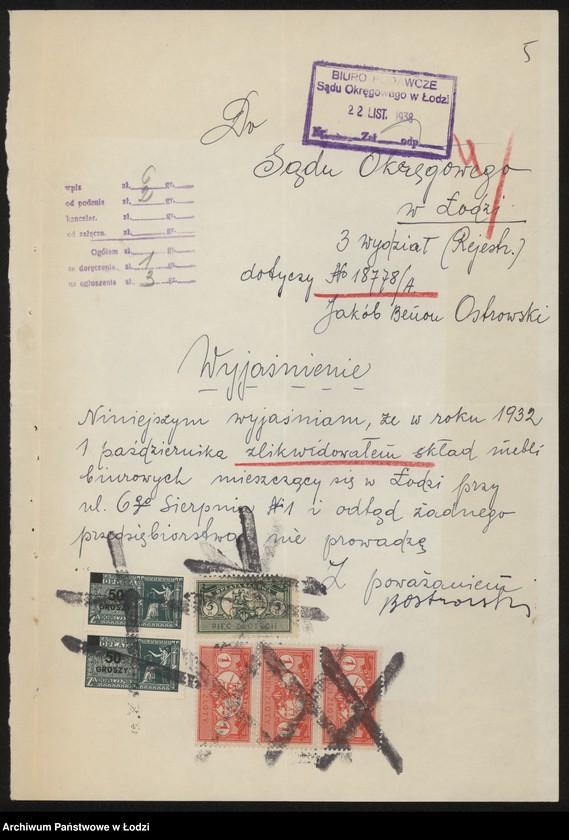 5
BIURO PODAWCZE
Sądu Okręgowego w Łodzi
22 LIST. 1938
Nr. Zał. odp.
Do
Sądu Okręgowego
w Łodzi
3 wydział (Rejestr.)
dotyczy № 18778/A
Jakób Benon Ostrowski
wpis zł. 6 gr.
od podania zł. 2 gr.
kancelar. zł. gr.
od załączn. zł. gr.
Ogółem zł. gr.
za doręczenie zł. 1 gr.
na ogłoszenie zł. 3 gr.
Wyjaśnienie
Niniejszym wyjaśniam, że w roku 1932
1 października zlikwidowałem skład mebli
biurowych mieszczący się w Łodzi przy
ul. 6go Sierpnia №1 i odtąd żadnego
przedsiębiorstwa nie prowadzę
Z poważaniem
BOstrowski
50
GROSZY
OPŁATA
50
GROSZY
5 5
PIĘĆ ZŁOTYCH
1 1 1
Archiwum Państwowe w Łodzi